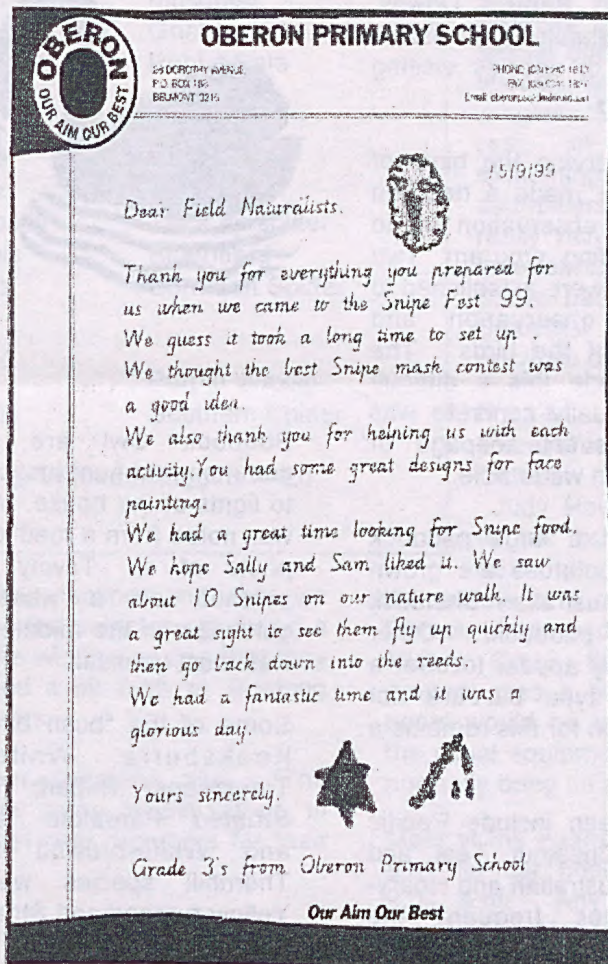 OBERON
OUR AIM OUR BEST
OBERON PRIMARY SCHOOL
P.O. BOX
BELMONT 3216
PHONE
FAX
Email
15/9/99
Dear Field Naturalists.
Thank you for everything you prepared for
us when we came to the Snipe Fest 99.
We guess it took a long time to set up
We thought the best Snipe mask contest was
a good idea.
We also thank you for helping us with each
activity. You had some great designs for face
painting.
We had a great time looking for Snipe food.
We hope Sally and Sam liked it. We saw
about 10 Snipes on our nature walk. It was
a great sight to see them fly up quickly and
then go back down into the reeds.
We had a fantastic time and it was a
glorious day.
Yours sincerely.
Grade 3's from Oberon Primary School
Our Aim Our Best